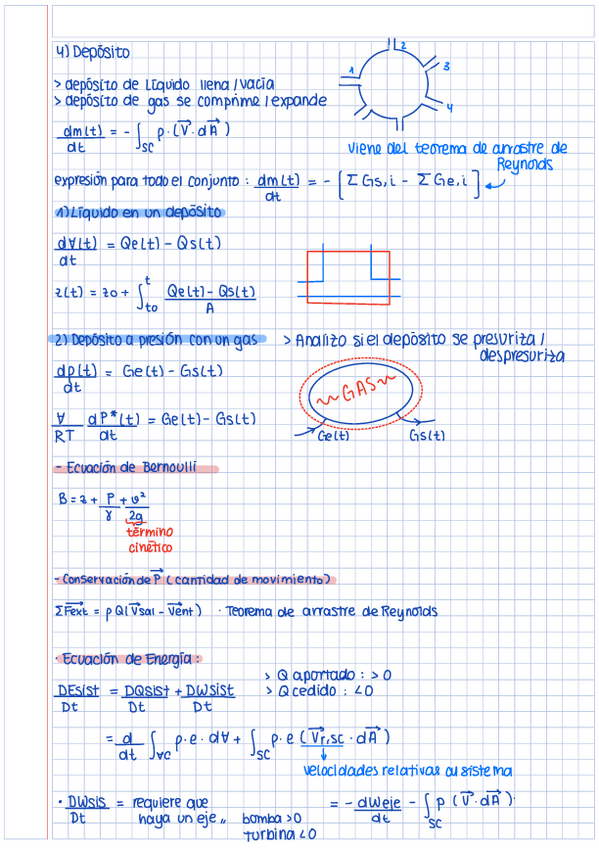 4) Depósito
1
2
3
4
> depósito de líquido llena / vacía
> depósito de gas se comprime / expande
dm(t)/dt = - ∫SC ρ·(V⃗·dA⃗)
viene del teorema de arrastre de Reynolds
expresión para todo el conjunto : dm(t)/dt = - [ΣGs,i - ΣGe,i]
1) Líquido en un depósito
d∀(t)/dt = Qe(t) - Qs(t)
z(t) = z0 + ∫t0^t Qe(t) - Qs(t)/A
2) Depósito a presión con un gas
> Analizo si el depósito se presuriza / despresuriza
dp(t)/dt = Ge(t) - Gs(t)
~GAS~
∀/RT dP*(t)/dt = Ge(t) - Gs(t)
Ge(t)
Gs(t)
- Ecuación de Bernoulli
B = z + P/γ + v²/2g
término
cinético
- Conservación de P⃗ (cantidad de movimiento)
ΣF⃗ext = ρQ(V⃗sal - V⃗ent) · Teorema de arrastre de Reynolds
· Ecuación de Energía :
> Q aportado : > 0
> Q cedido : < 0
DEsist/Dt = DQsist/Dt + DWsist/Dt
= d/dt ∫VC ρ·e·d∀ + ∫SC ρ·e (V⃗r,sc · dA⃗)
velocidades relativas al sistema
· DWsis/Dt = requiere que
haya un eje,, bomba >0
turbina <0
= - dWeje/dt - ∫SC p (V⃗·dA⃗)